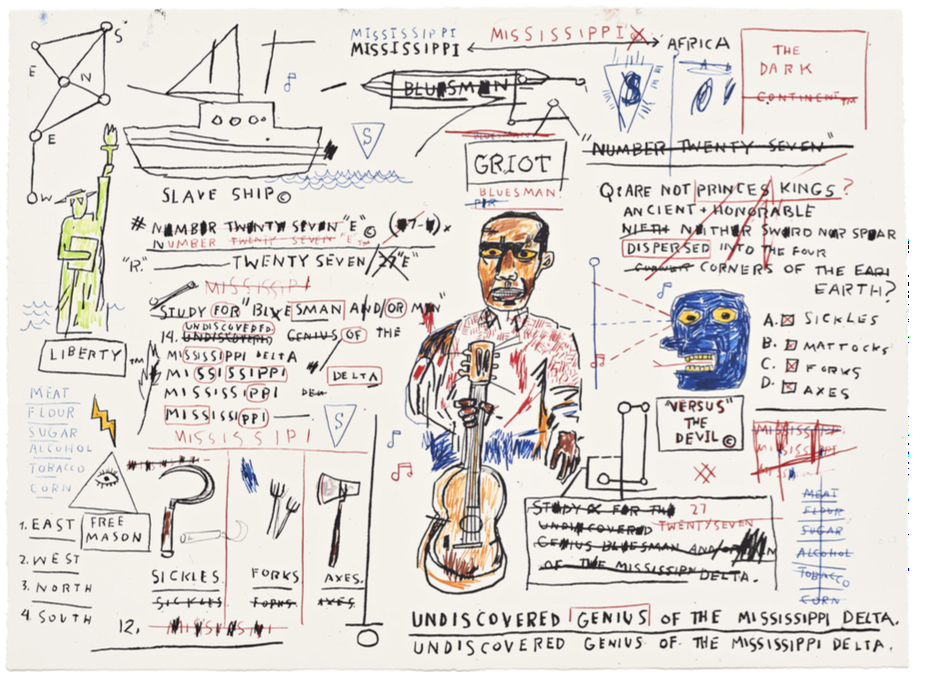 S
E N
E
W
MISSISSIPPI
MISSISSIPPI
MISSISSIPPI
AFRICA
THE
DARK
CONTINENT™
BLUESMAN
S
S
SLAVE SHIP©
GRIOT
BLUESMAN
"NUMBER TWENTY SEVEN"
# NUMBER TWENTY SEVEN "E" ©
NUMBER TWENTY SEVEN "E™
"R." TWENTY SEVEN/27"E"
Q: ARE NOT PRINCES KINGS?
ANCIENT + HONORABLE
NEITHER SWORD NOR SPEAR
DISPERSED INTO THE FOUR
CORNERS OF THE
EARTH?
MISSISSIPI
STUDY FOR "BLUESMAN AND/OR MAN"
14. UNDISCOVERED GENIUS OF THE
UNDISCOVERED
MISSISSIPPI DELTA
MISSISSIPPI DELTA
MISSISSIPPI
MISSISSIPPI
MISSISSIPI
S
LIBERTY™
A. SICKLES
B. MATTOCKS
C. FORKS
D. AXES
MEAT
FLOUR
SUGAR
ALCOHOL
TOBACCO
CORN
"VERSUS"
THE
DEVIL©
MEAT
FLOUR
SUGAR
ALCOHOL
TOBACCO
CORN
1. EAST
2. WEST
3. NORTH
4. SOUTH
FREE
MASON
SICKLES FORKS AXES.
SICKLES FORKS AXES
12.
STUDY FOR THE 27
UNDISCOVERED TWENTYSEVEN
GENIUS BLUESMAN AND/OR MAN
OF THE MISSISSIPPI DELTA.
UNDISCOVERED GENIUS OF THE MISSISSIPPI DELTA.
UNDISCOVERED GENIUS OF THE MISSISSIPPI DELTA.